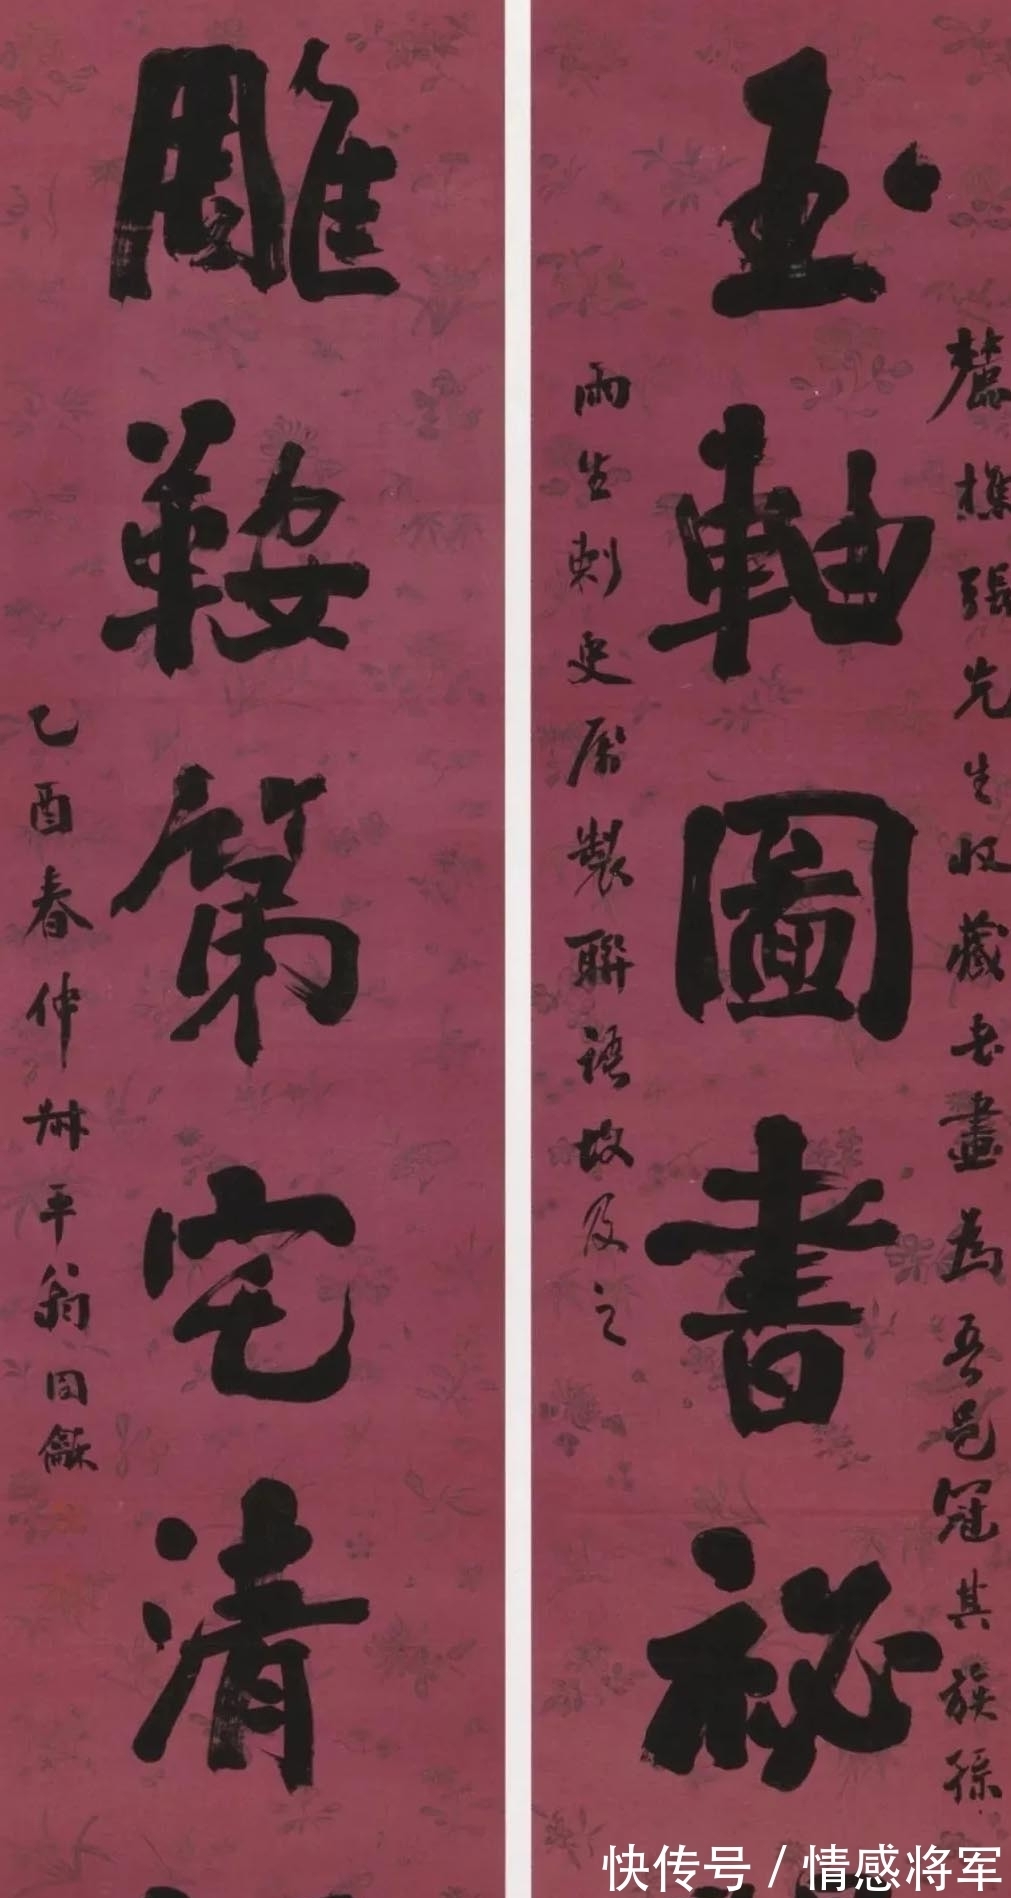 麓樵張先生收藏書畫為吾邑冠其族孫
玉軸圖書祕
雨生刺史屬製聯語故及之
雕鞍第宅清
乙酉春仲叔平翁同龢
快传号 / 情感将军